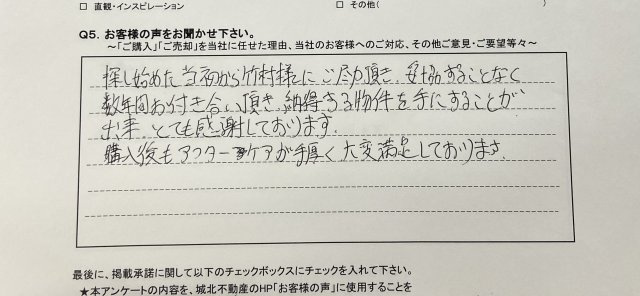 □ 直観・インスピレーション □ その他( )
Q5. お客様の声をお聞かせ下さい。
～「ご購入」「ご売却」を当社に任せた理由、当社のお客様へのご対応、その他ご意見・ご要望等々～
探し始めた当初から竹村様にご尽力頂き、妥協することなく
数年間お付き合い頂き、納得する物件を手にすることが
出来、とても感謝しております。
購入後もアフターケアが手厚く大変満足しております。
最後に、掲載承諾に関して以下のチェックボックスにチェックを入れて下さい。
★本アンケートの内容を、城北不動産のHP「お客様の声」に使用することを